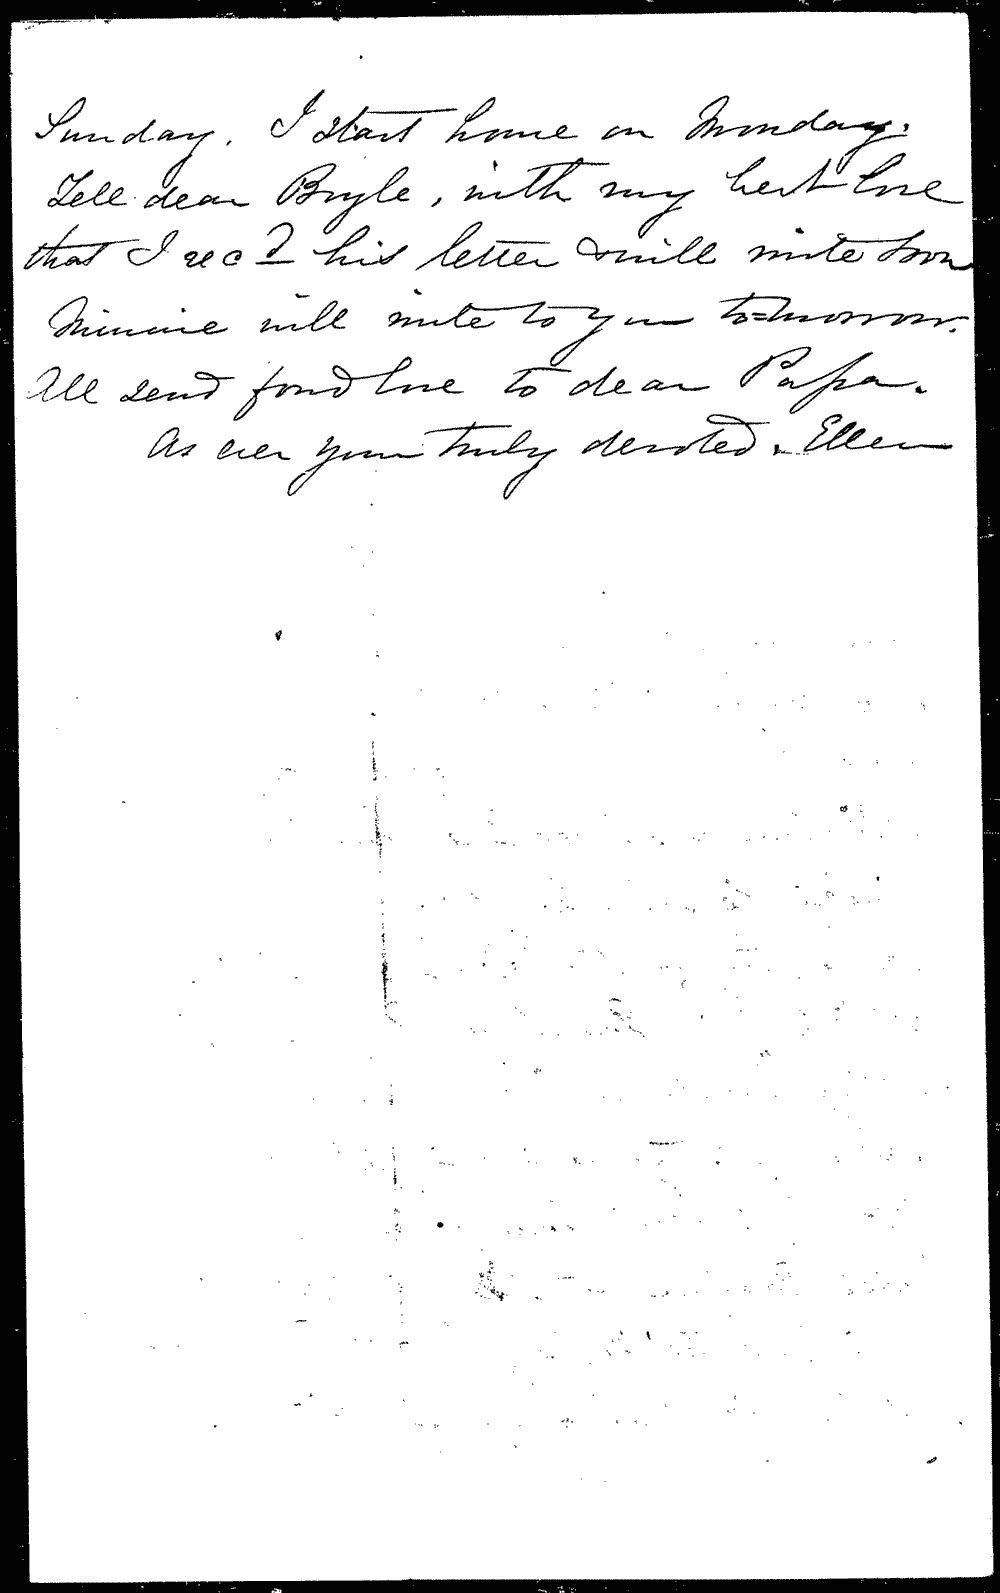 Sunday. I start home on Monday.
Tell dear Boyle, with my best love
that I recd his letter & will write soon
Minnie will write to you to=morrow.
All send fond love to dear Papa.
As ever your truly devoted. Ellen